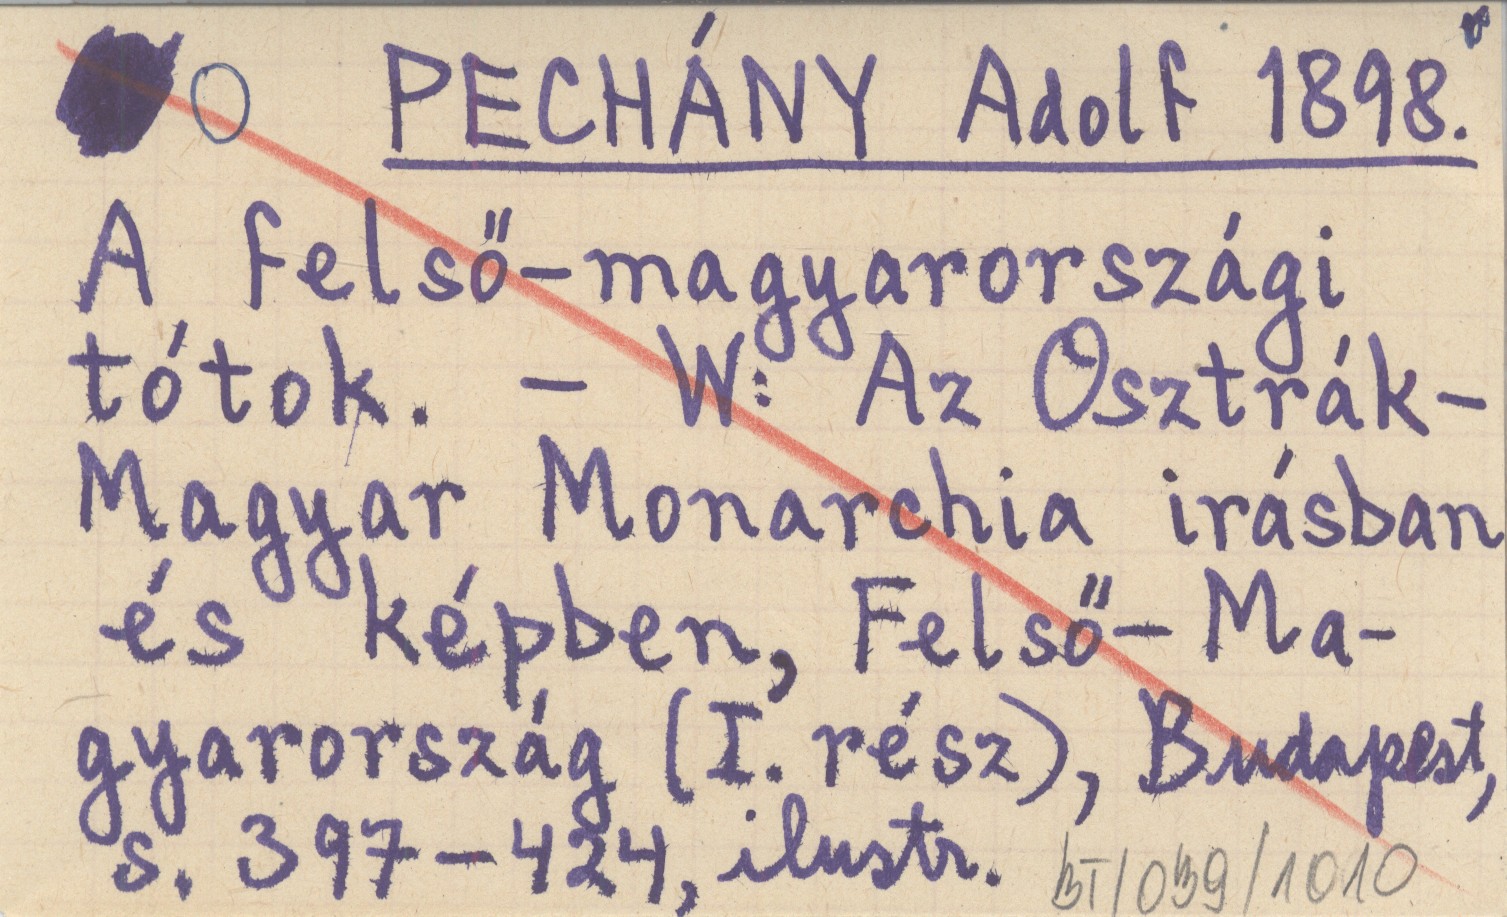 PECHÁNY Adolf 1898.
A felső-magyarországi
tótok. - W: Az Osztrák-
Magyar Monarchia irásban
és képben, Felső-Ma-
gyarország (I. rész), Budapest,
s. 397-424, ilustr.
BT/039/1010